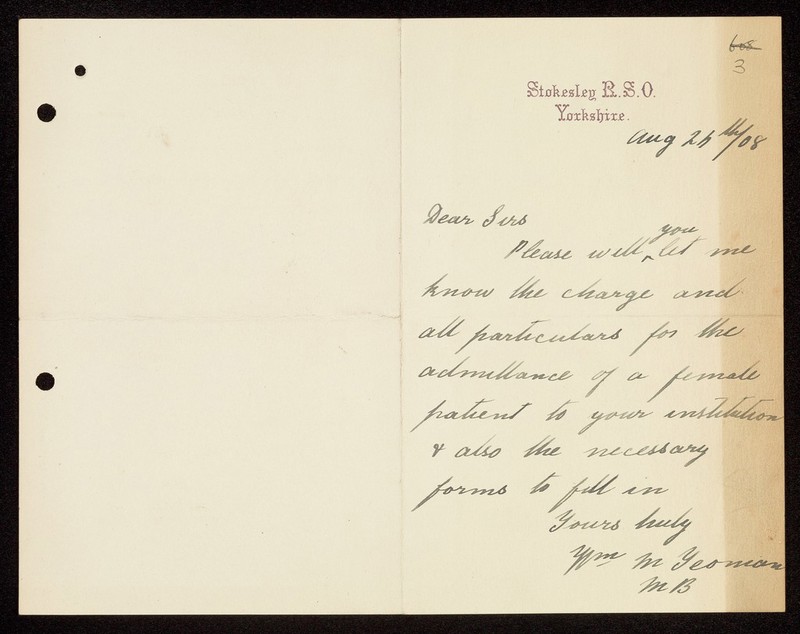 3
Stokesley R.S.O.
Yorkshire.
Aug 26th/08
Dear Sirs
you
Please will let me
know the charge and
all particulars for the
admittance of a female
patient to your institution
& also the necessary
forms to fill in
Yours truly
Wm M Yeoman
MB